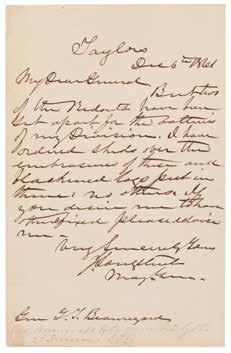 Taylors
Dec 6th 1861
My Dear General
But two
of the Redouts have been
set apart for the batteries
of my Division. I have
ordered sheds over the
embrasures of these and
blackened logs put in
them: no others. If
you desire me to have
others fixed please advise
me.
Very Sincerely Yours
J Longstreet
Maj Gen.
Gen G. T. Beauregard